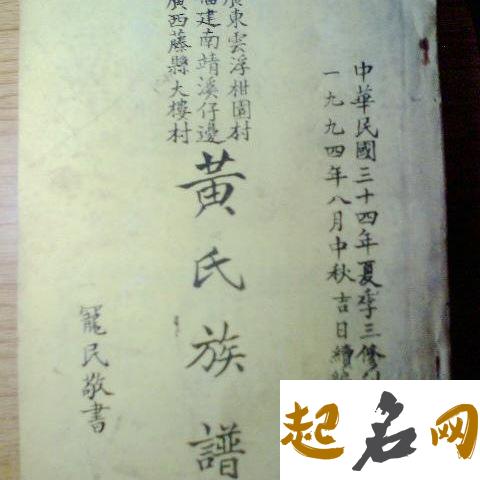 中華民國三十四年夏季三修
一九九四年八月中秋吉日續
廣東雲浮柑園村
福建南靖溪仔邊
廣西藤縣大樓村
黃氏族譜
寵民敬書
起名网